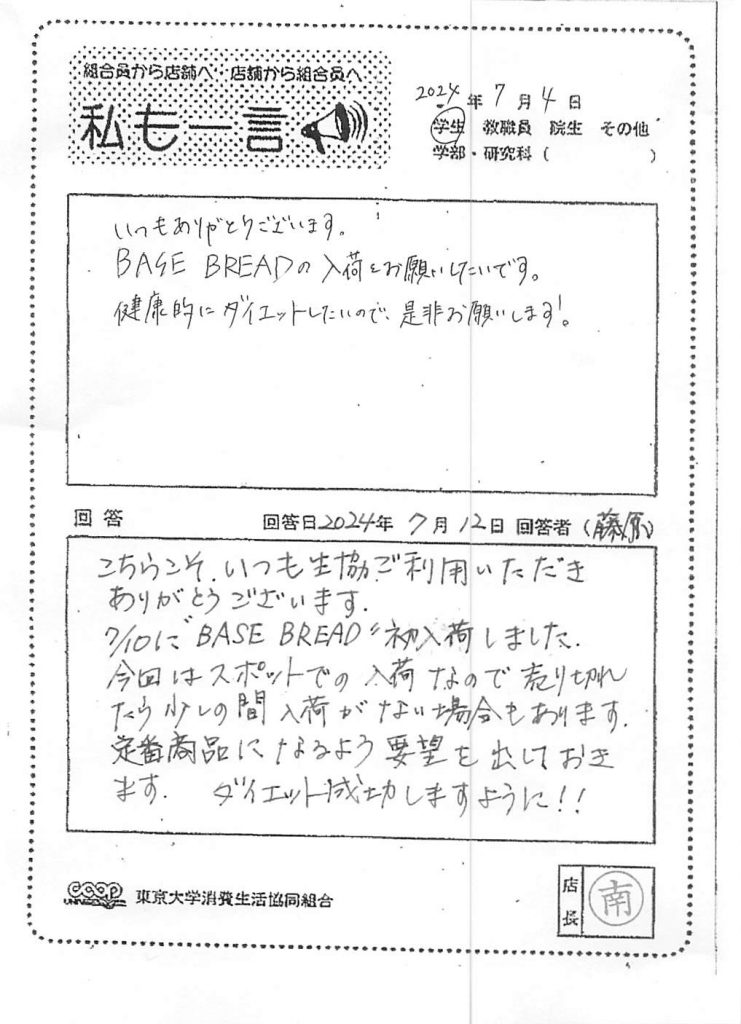 組合員から店舗へ・店舗から組合員へ
私も一言
2024年7月4日
学生 教職員 院生 その他
学部・研究科( )
いつもありがとうございます。
BASE BREADの入荷をお願いしたいです。
健康的にダイエットしたいので、是非お願いします!。
回答 回答日2024年7月12日 回答者(藤原)
こちらこそ、いつも生協ご利用いただき
ありがとうございます.
7/10に"BASE BREAD"初入荷しました.
今回はスポットでの入荷なので売り切れ
たら少しの間入荷がない場合もあります.
定番商品になるよう要望を出しておき
ます. ダイエット成功しますように!!
coop
UNIVERSITY
東京大学消費生活協同組合
店長
南